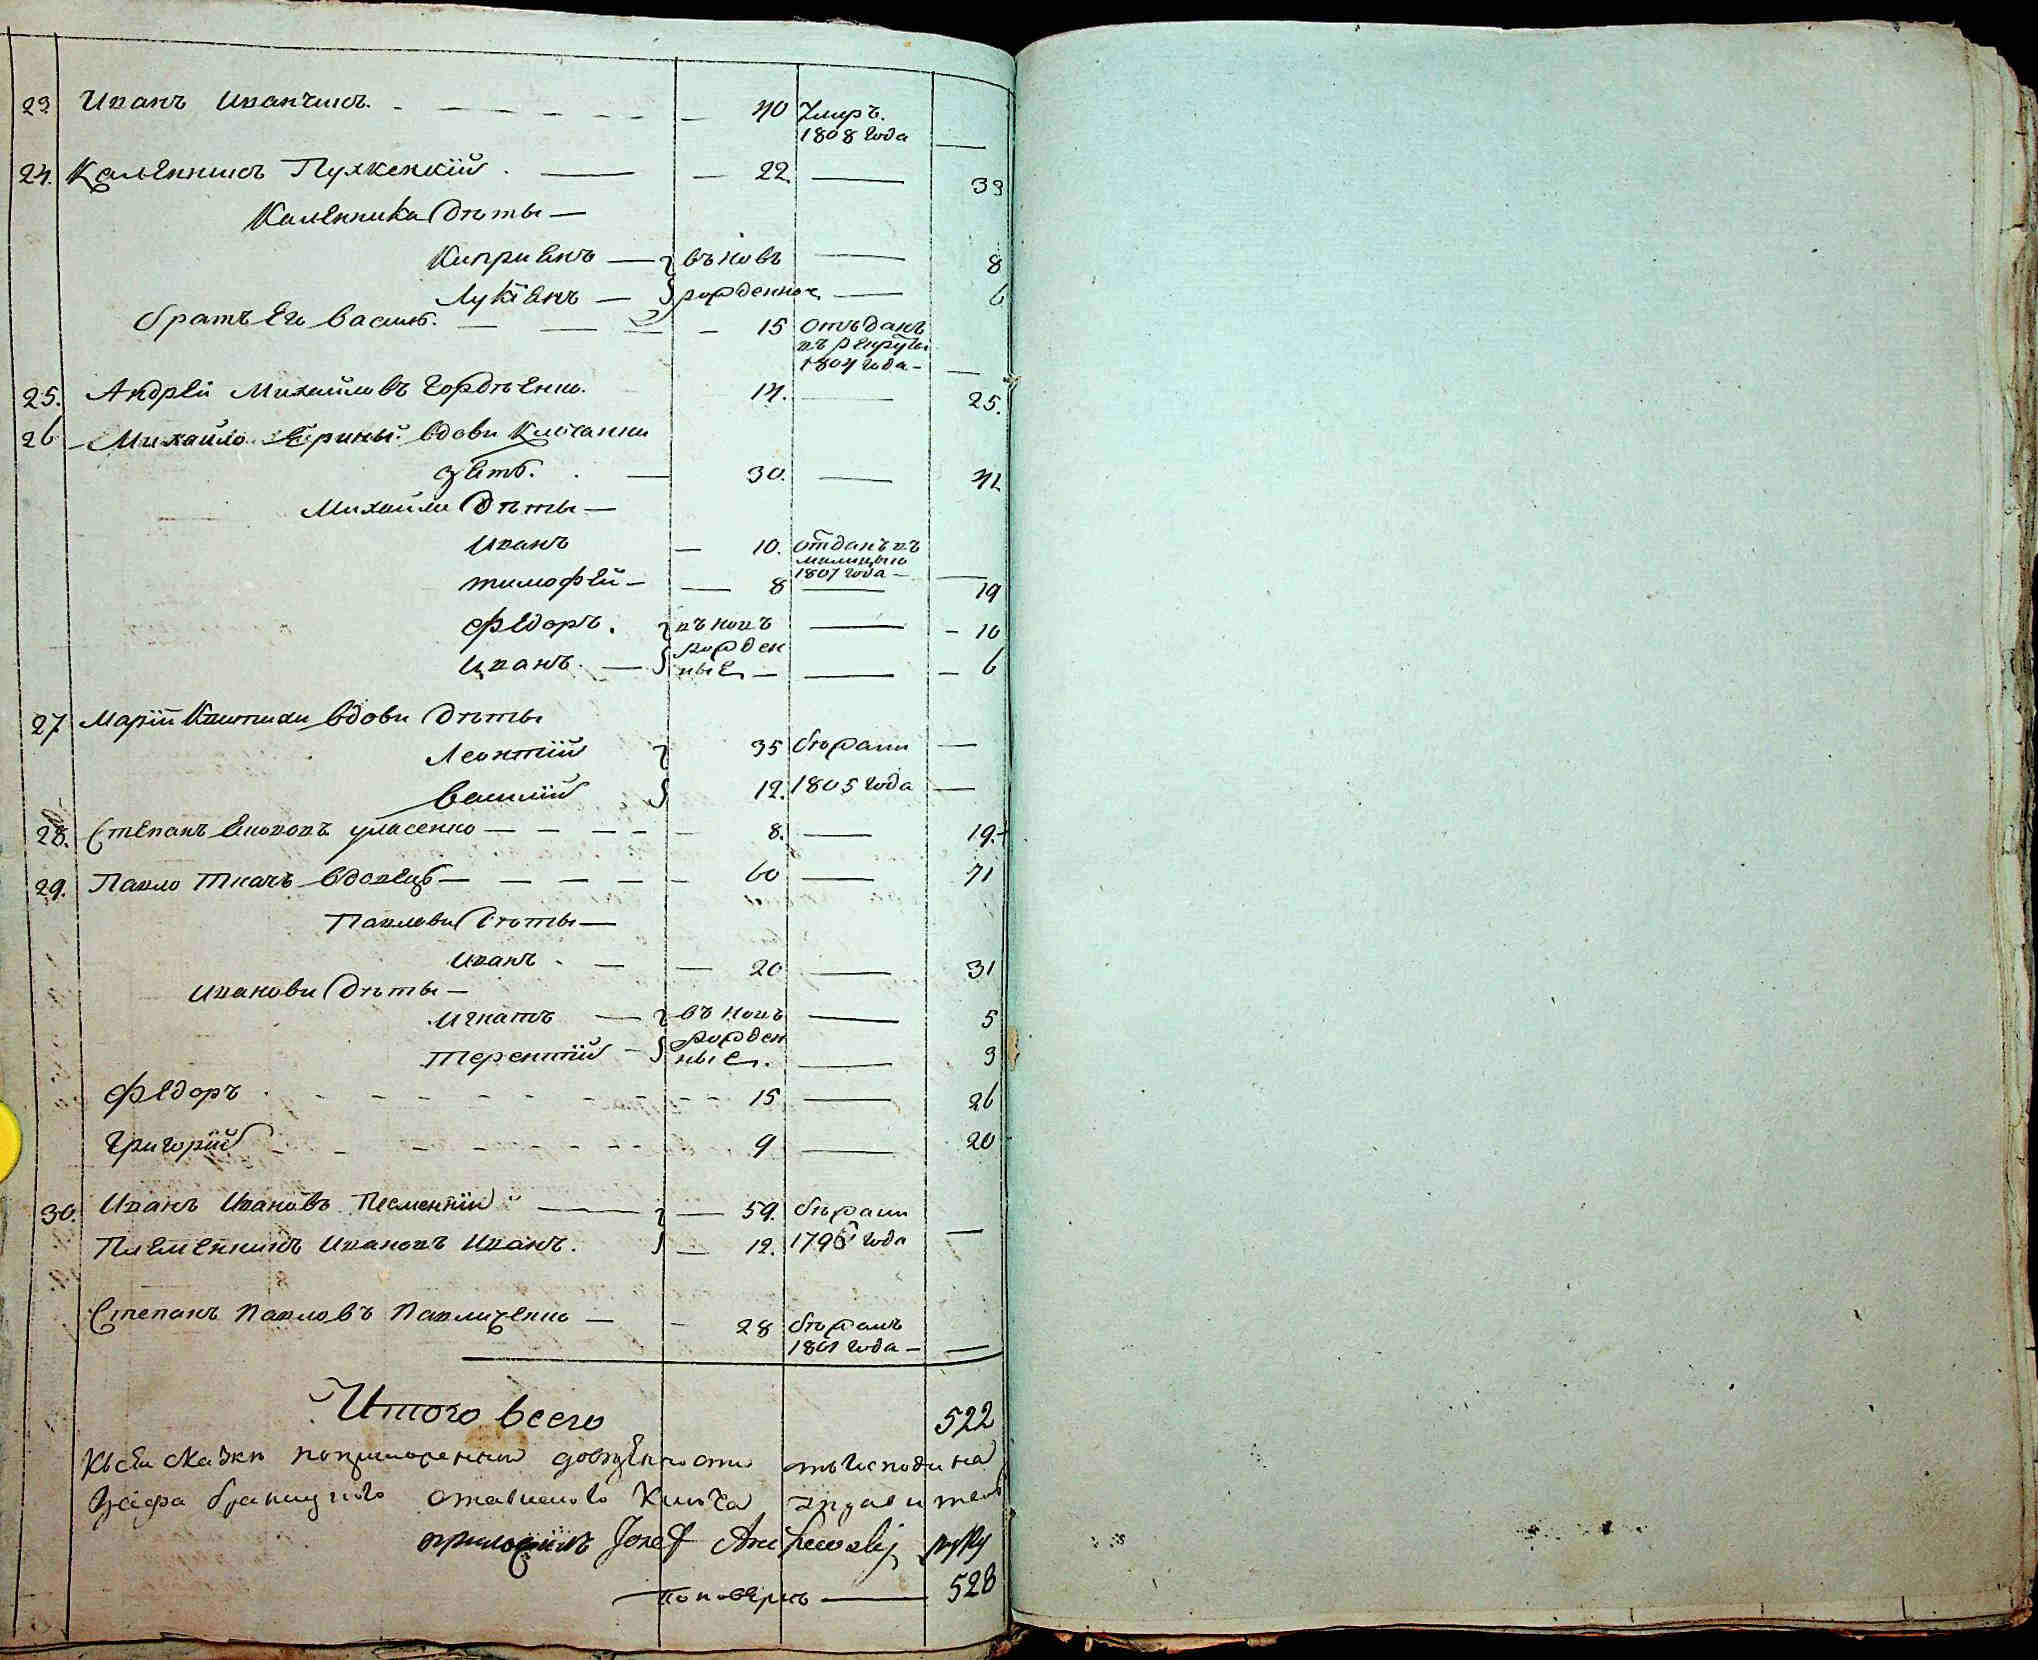 23 Иванъ Иванчикъ. 40 Умръ. 1808 года
24. Каленникъ Пухкенкій 22 33
Каленника дѣты
Киприянъ въновь 8
Лукіянъ рожденное 6
братъ Его Василь. 15 отъданъ въ рекруты 1804 года
25. Андрей Михайловъ Гордѣенко. 14. 25.
26 Михайло Ерины вдовы
зять. 30. 41
Михайла дѣты
Иванъ 10. отданъ въ милицыю 1807 года
тимофей 8 19
Федоръ. въ новъ 10
Иванъ. рожденные 6
27 Марiи вдовы дѣты
Леонтій 35 бѣжали
Василій 12. 1805 года
28. Степанъ Власенко 8. 19.
29. Павло Ткачъ вдовецъ 60 71
Павловы дѣты
Иванъ 20 31
Ивановы дѣты
Игнатъ въ новъ 5
Терентій рожденные. 3
Федоръ 15 26
Григорій 9 20
30. Иванъ Ивановъ 59. бѣжали
Племенникъ Ивановъ Иванъ. 12. 1796 года
Степанъ Павловъ Павличенко 28 бѣжалъ 1801 года
Итого всего 522
Къ сей сказки отъ господина
Графа Браницкого Ключа
приложилъ Jozef руку
по поверкѣ 528